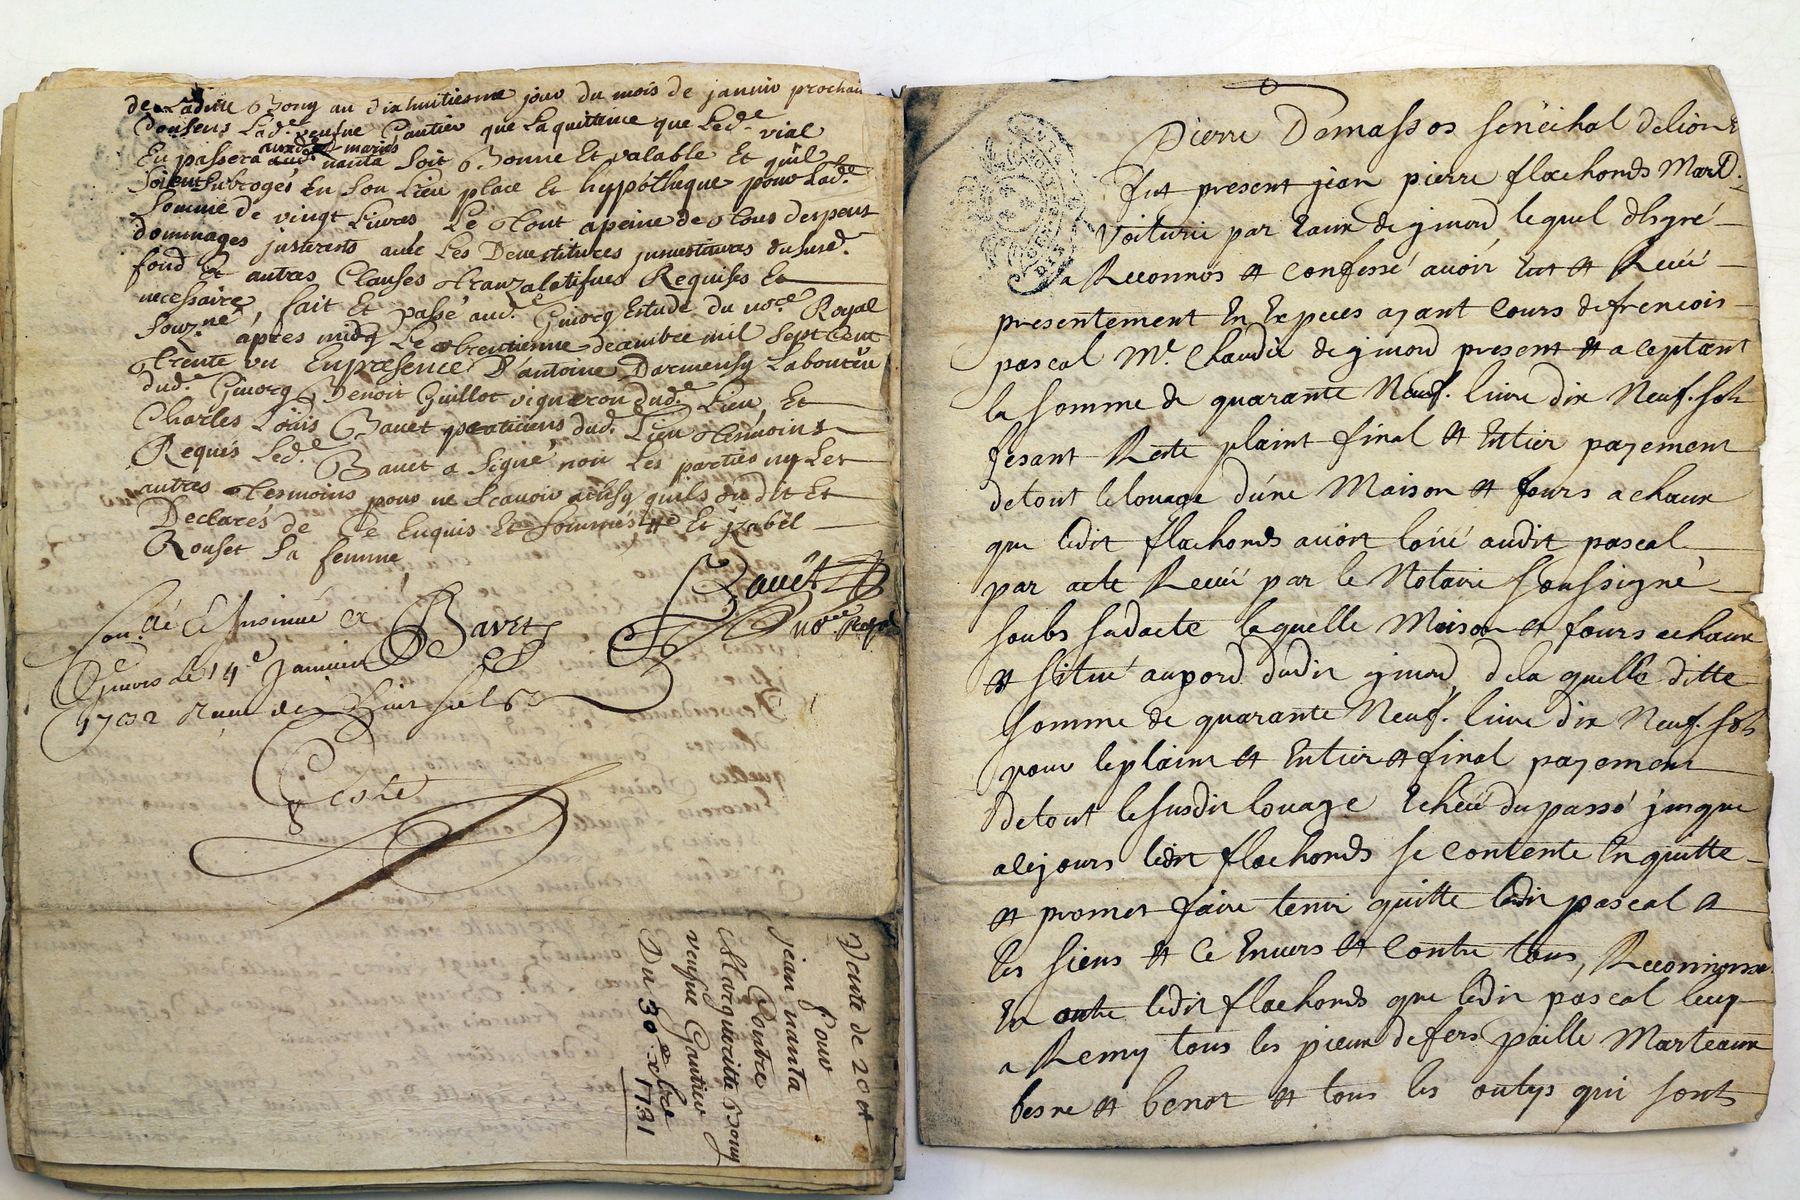 de Ladite Bony au dixhuitiesme jour du mois de janvier prochain
Consens Lad.e veufue Gautier que Laquittance que Led.e vial
aud.t maries
En passera aud.e nanta soit Bonne Et valable Et quil
soient subrogés En son Lieu place Et hypotheque pour Lad.e
somme de vingt Livres, Le tout a peine de tous despens
dommages interests avec Les Devestitures investitures dususd.
fond Et autres Clauses translatifues Requises Et
necessaire, fait Et passé aud.e Gimorg Estude du no.re Royal
souz.né apres midy Le trentienne decembre mil sept Cent
trente un En presence D'antoine Darmensy Laboureur
dud.e Gimorg Benoit Guillot vigneron dud.e Lieu, Et
Charles Loüis Bavet praticiens dud. Lieu tesmoins
Requis Led.e Bavet a signé non Les parties ny Les
autres tesmoins pour ne scavoir ainsy quils on dit Et
Declarés de ce Enquis Et sommés, Et yzabel
Rouset sa femme,
Bavet
Bavet
no.re Royal
Con.llé & Insinué a
le 14e Janvier
1732 Reçu
Coste
Vente de 20 tt
Pour
jean nanta
Contre
Margueritte Bony
veufue Gautier
Du 30.e xbre
1731
Pierre Damassos senéchal delion
fut present jean pierre flachonds Mard.
voiturié par Eaux de gimord lequel
a Reconnus et confessé avoir Eut et Receu
presentement En Expeces ayant cours defrencois
pascal Me. Chaudié de gimord present et aceptant
la somme de quarante Neuf. livre dix Neuf. sols
fesant Reste plaint final et Entier payement
detout lelouage d'une Maison et fours achaux
que ledit flachonds avoit loüé audit pascal
par acte Receu par le Notaire soussigné
soubs sadacte laquelle Maison et fours achaux
et sittué auport dudit gimord, dela quelle ditte
somme de quarante Neuf. livre dix Neuf. sols
pour leplaint et Entier et final payement
detout lesusdit louage Echeu dupassé jusque
acejours ledit flachonds se contente En quitte
et promet faire tenir quitte ledit pascal et
les siens et ce Envers et contre tous, Reconnoissant
En outre ledit flachonds que ledit pascal luy
a Remy tous les pieux defers paille Marteaux
besne et benot et tous les outys qui sont